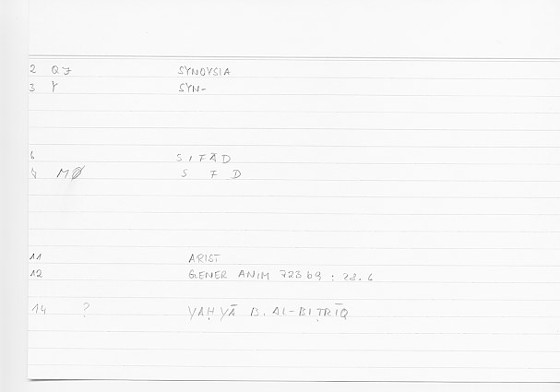 2 QJ SYNOYSIA
3 Y SYN-
6 SIFĀD
9 MØ S F D
11 ARIST
12 GENER ANIM 723b9 : 28.6
14 ? YAḤYĀ B. AL-BIṬRĪQ